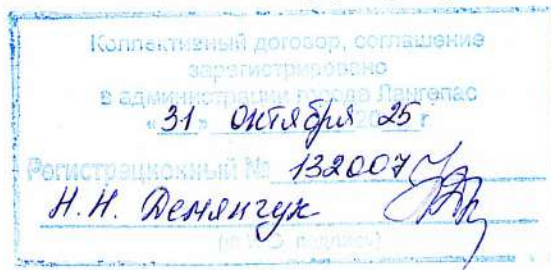 Коллективный договор, соглашение
зарегистрировано
в администрации города Лангепас
«31» октября 2025 г.
Регистрационный № 132007
Н.Н. Демянчук
(Ф.И.О. подпись)